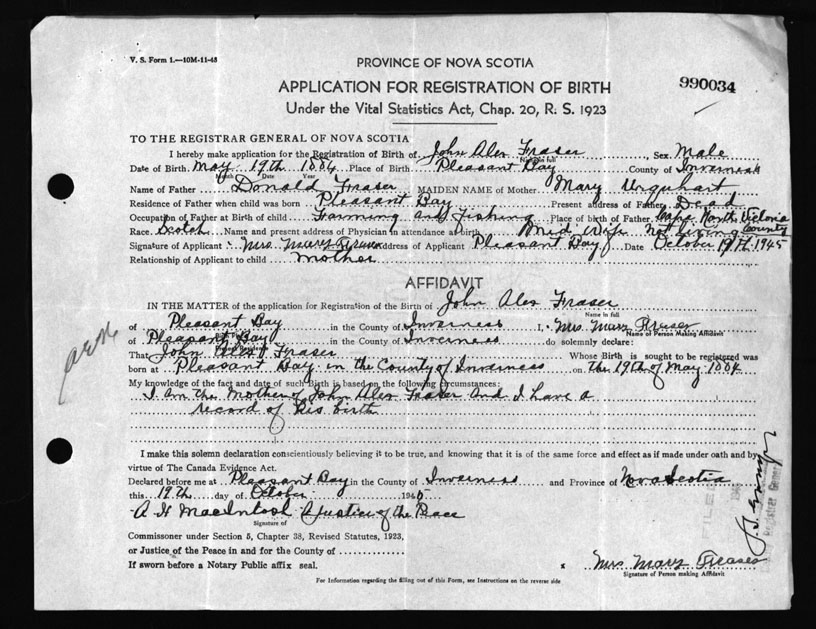 V. S. Form 1.—10M-11-43
PROVINCE OF NOVA SCOTIA
APPLICATION FOR REGISTRATION OF BIRTH
990034
Under the Vital Statistics Act, Chap. 20, R. S. 1923
TO THE REGISTRAR GENERAL OF NOVA SCOTIA
I hereby make application for the Registration of Birth of John Alex Fraser, Sex Male
Name in full
Date of Birth May 19th 1884 Place of Birth Pleasant Bay County of Inverness
Month Date Year
Name of Father Donald Fraser MAIDEN NAME of Mother Mary Urquhart
Residence of Father when child was born Pleasant Bay Present address of Father Dead
Occupation of Father at Birth of child Farming and Fishing Place of birth of Father Cape North Victoria County
Race Scotch Name and present address of Physician in attendance at birth Mid Wife Not living
Signature of Applicant Mrs. Mary Fraser Address of Applicant Pleasant Bay Date October 19th 1945
Relationship of Applicant to child mother
AFFIDAVIT
IN THE MATTER of the application for Registration of the Birth of John Alex Fraser
Name in full
of Pleasant Bay in the County of Inverness I, Mrs. Mary Fraser
Name of Person Making Affidavit
of Pleasant Bay in the County of Inverness do solemnly declare:
That John Alex Fraser Whose Birth is sought to be registered was
born at Pleasant Bay in the County of Inverness on the 19th of May 1884
My knowledge of the fact and date of such Birth is based on the following circumstances:
I am the Mother of John Alex Fraser and I have a
record of his birth
I make this solemn declaration conscientiously believing it to be true, and knowing that it is of the same force and effect as if made under oath and by
virtue of The Canada Evidence Act.
Declared before me at Pleasant Bay in the County of Inverness and Province of Nova Scotia
this 19th day of October 194
A H MacIntosh A Justice of the Peace
Signature of
Commissioner under Section 5, Chapter 38, Revised Statutes, 1923,
or Justice of the Peace in and for the County of
If sworn before a Notary Public affix seal.
x Mrs Mary Fraser
Signature of Person making Affidavit
For Information regarding the filling out of this Form, see Instructions on the reverse side
FILED
Registrar General